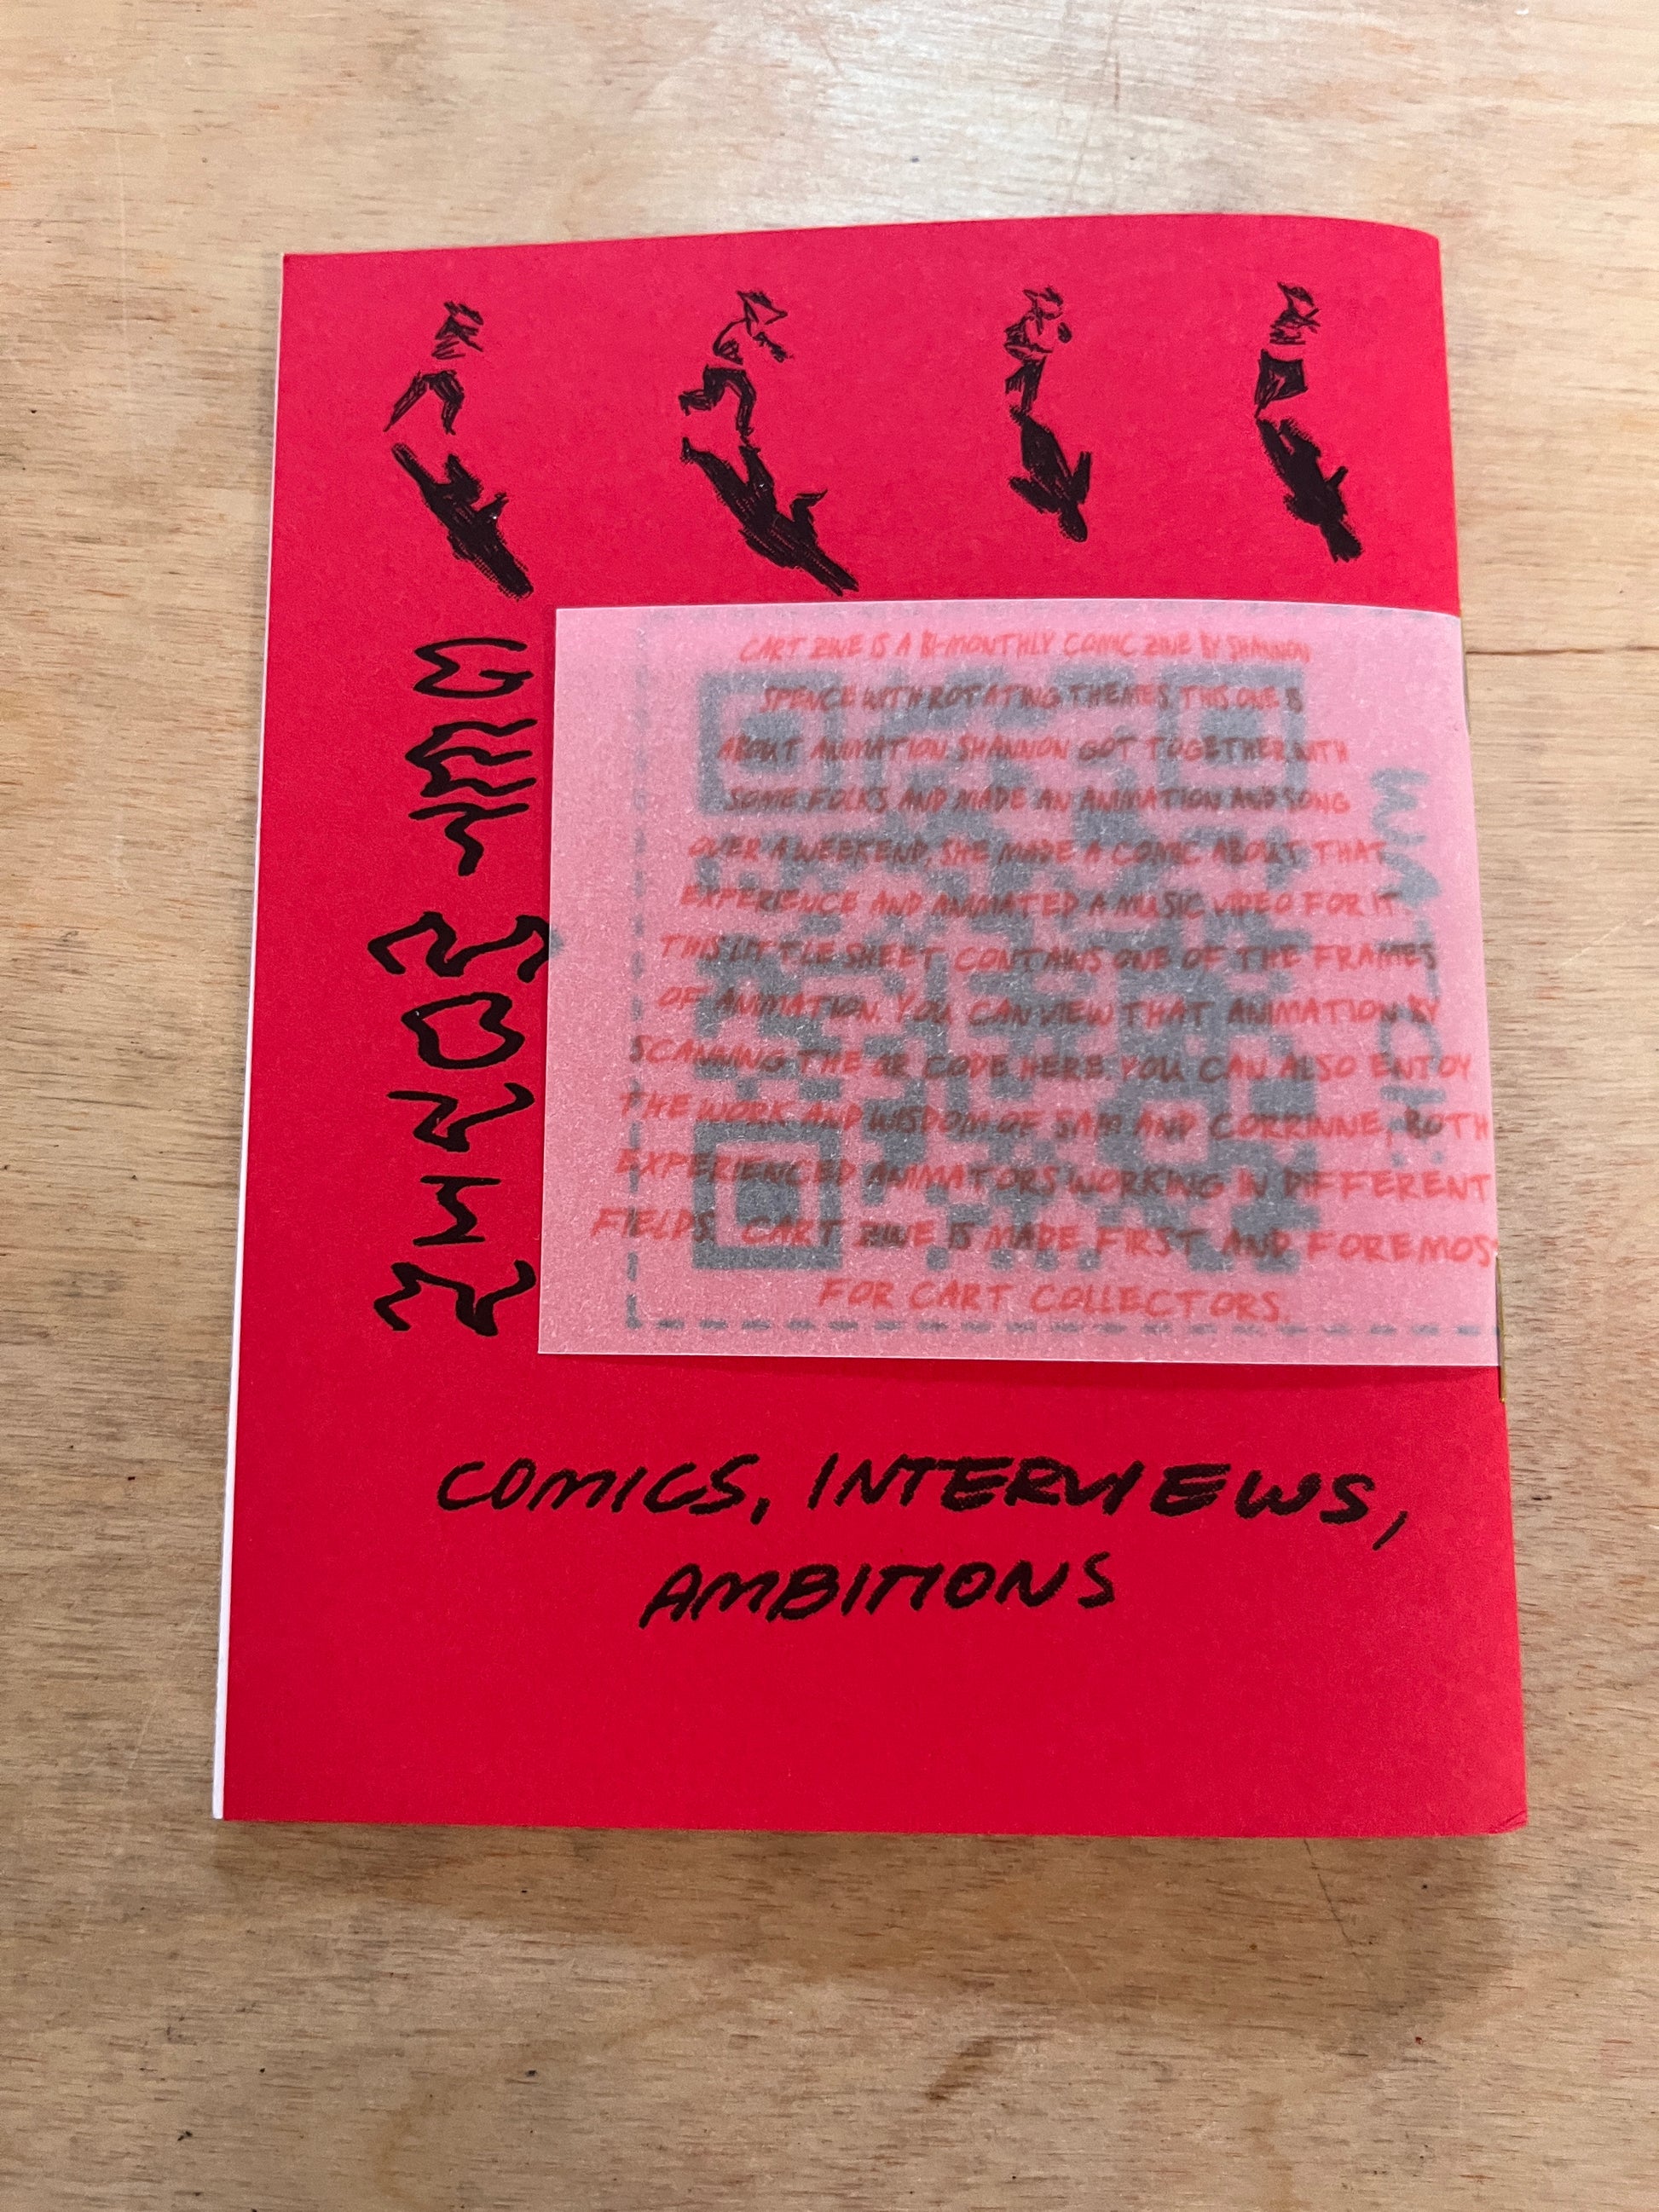 CART ZINE IS A BI-MONTHLY COMIC ZINE BY SHANNON
SPENCE WITH ROTATING THEMES. THIS ONE IS
ABOUT ANIMATION. SHANNON GOT TOGETHER WITH
SOME FOLKS AND MADE AN ANIMATION AND SONG
OVER A WEEKEND, SHE MADE A COMIC ABOUT THAT
EXPERIENCE AND ANIMATED A MUSIC VIDEO FOR IT.
THIS LITTLE SHEET CONTAINS ONE OF THE FRAMES
OF ANIMATION. YOU CAN VIEW THAT ANIMATION BY
SCANNING THE QR CODE HERE. YOU CAN ALSO ENJOY
THE WORK AND WISDOM OF SAM AND CORRINNE, BOTH
EXPERIENCED ANIMATORS WORKING IN DIFFERENT
FIELDS. CART ZINE IS MADE FIRST AND FOREMOS
FOR CART COLLECTORS.
WATCH:
COMICS, INTERVIEWS,
AMBITIONS